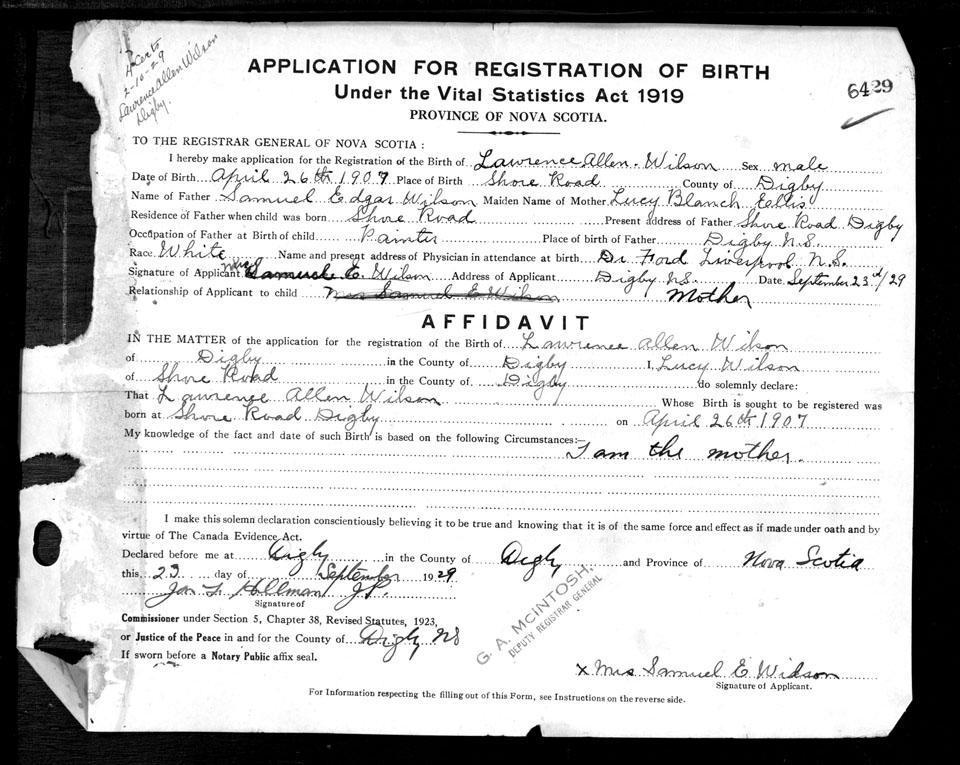 4 Certs
2-10-29
Lawrence Allen Wilson
Digby.
APPLICATION FOR REGISTRATION OF BIRTH
Under the Vital Statistics Act 1919
PROVINCE OF NOVA SCOTIA.
6429
TO THE REGISTRAR GENERAL OF NOVA SCOTIA :
I hereby make application for the Registration of the Birth of Lawrence Allen Wilson Sex male
Date of Birth April 26th 1907 Place of Birth Shore Road County of Digby
Name of Father Samuel Edgar Wilson Maiden Name of Mother Lucy Blanch Ellis
Residence of Father when child was born Shore Road Present address of Father Shore Road Digby
Occupation of Father at Birth of child Painter Place of birth of Father Digby N.S.
Race White Name and present address of Physician in attendance at birth Dr. Ford Liverpool N.S.
Signature of Applicant Mrs Samuel E. Wilson Address of Applicant Digby N.S. Date September 23rd/29
Relationship of Applicant to child Mrs Samuel E Wilson Mother
AFFIDAVIT
IN THE MATTER of the application for the registration of the Birth of Lawrence Allen Wilson
of Digby in the County of Digby I, Lucy Wilson
of Shore Road in the County of Digby do solemnly declare:
That Lawrence Allen Wilson Whose Birth is sought to be registered was
born at Shore Road Digby on April 26th 1907
My knowledge of the fact and date of such Birth is based on the following Circumstances:—
I am the mother.
I make this solemn declaration conscientiously believing it to be true and knowing that it is of the same force and effect as if made under oath and by
virtue of The Canada Evidence Act.
Declared before me at Digby in the County of Digby and Province of Nova Scotia
this 23 day of September 1929
J.P.
Signature of
Commissioner under Section 5, Chapter 38, Revised Statutes, 1923,
or Justice of the Peace in and for the County of Digby NS
If sworn before a Notary Public affix seal.
G. A. McINTOSH,
DEPUTY REGISTRAR GENERAL
x Mrs Samuel E Wilson
Signature of Applicant.
For Information respecting the filling out of this Form, see Instructions on the reverse side.